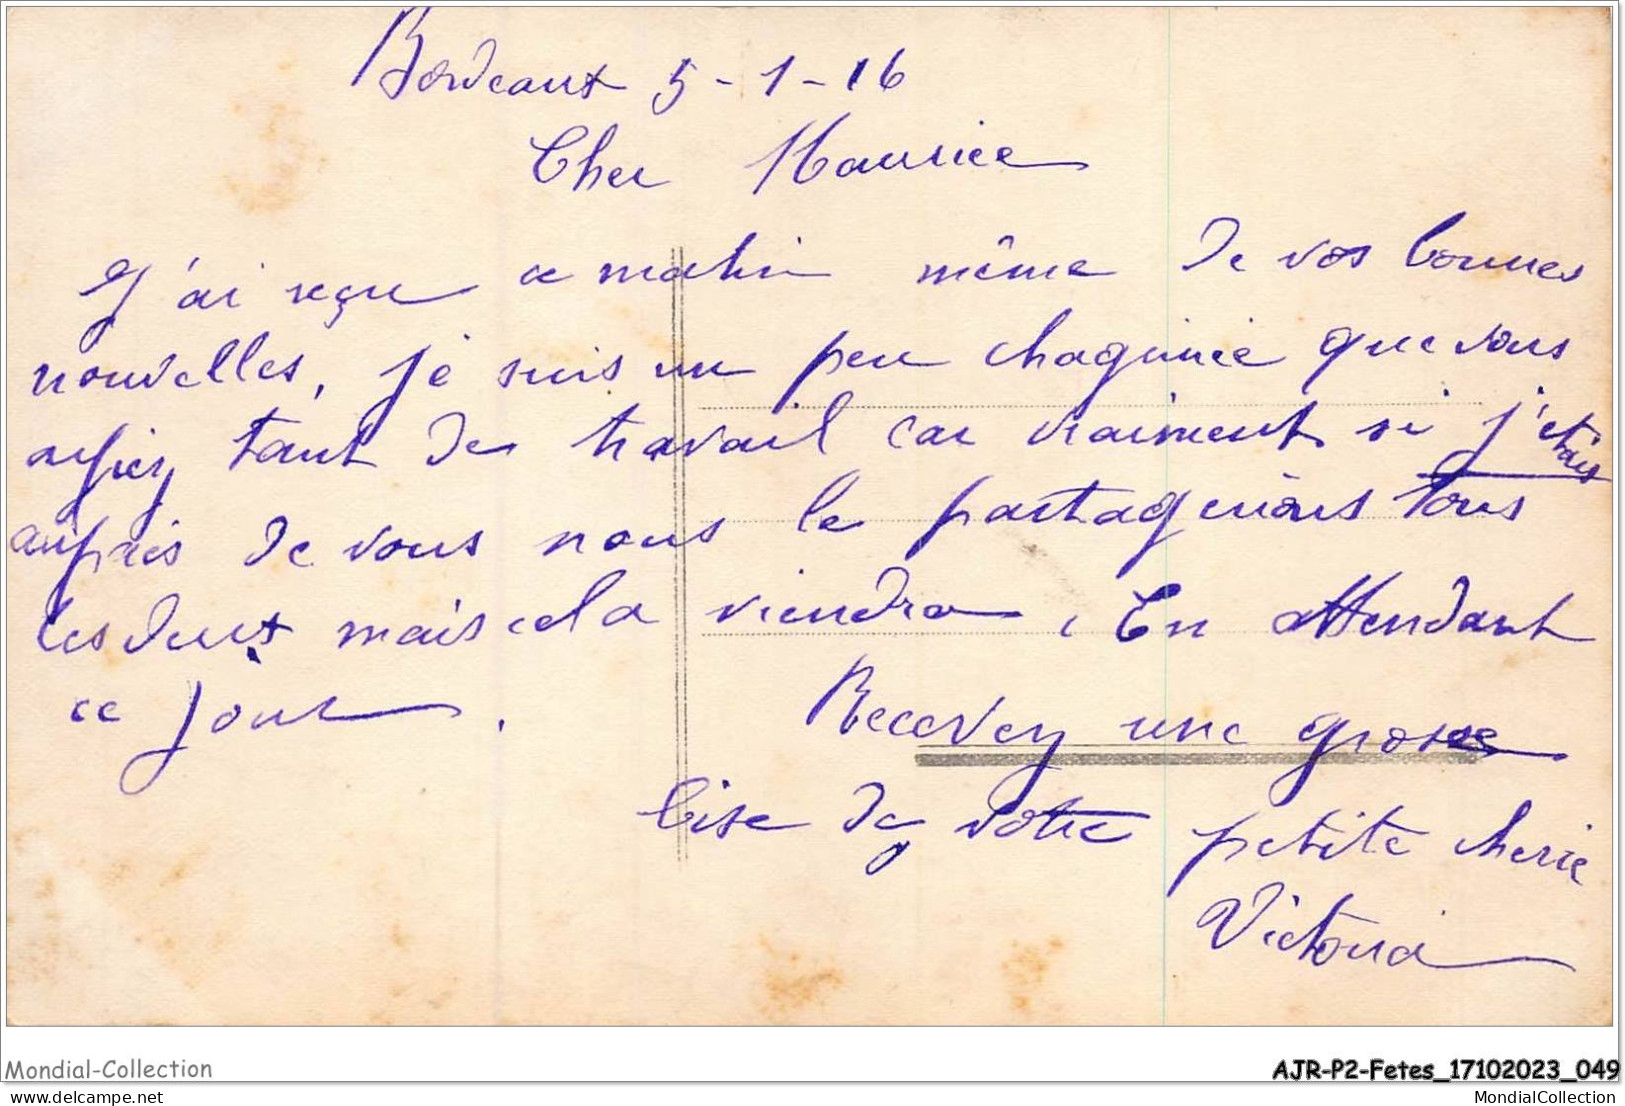 Bordeaux 5-1-16
Cher Maurice
J'ai reçu ce matin même de vos bonnes
nouvelles, je suis un peu chaginée que vous
ayiez tant de travail car vraiment si j'étais
auprès de vous nous le partagerions tous
les deux mais cela viendra, En attendant
ce jour.
Recevez une grosse
bise de votre petite cherie
Victoria
Mondial-Collection
AJR-P2-Fetes_17102023_049
Mondial-Collection.com
MondialCollection